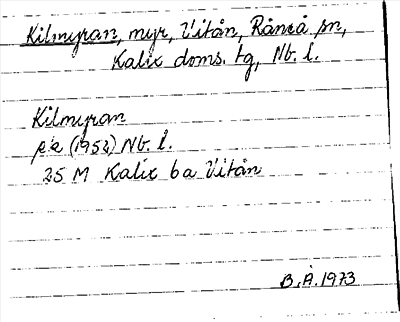 Kilmyran, myr, Vitån, Råneå sn,
Kalix doms. tg, Nb. l.
Kilmyran
p'a (1952) Nb. l.
25 M Kalix ba Vitån
B.Å. 1973